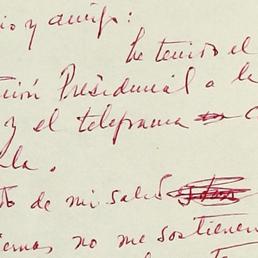 io y amigo:
he tenido el
ción Presidencial a la
y el telegrama
la.
to de mi salud
iernas no me sostienen